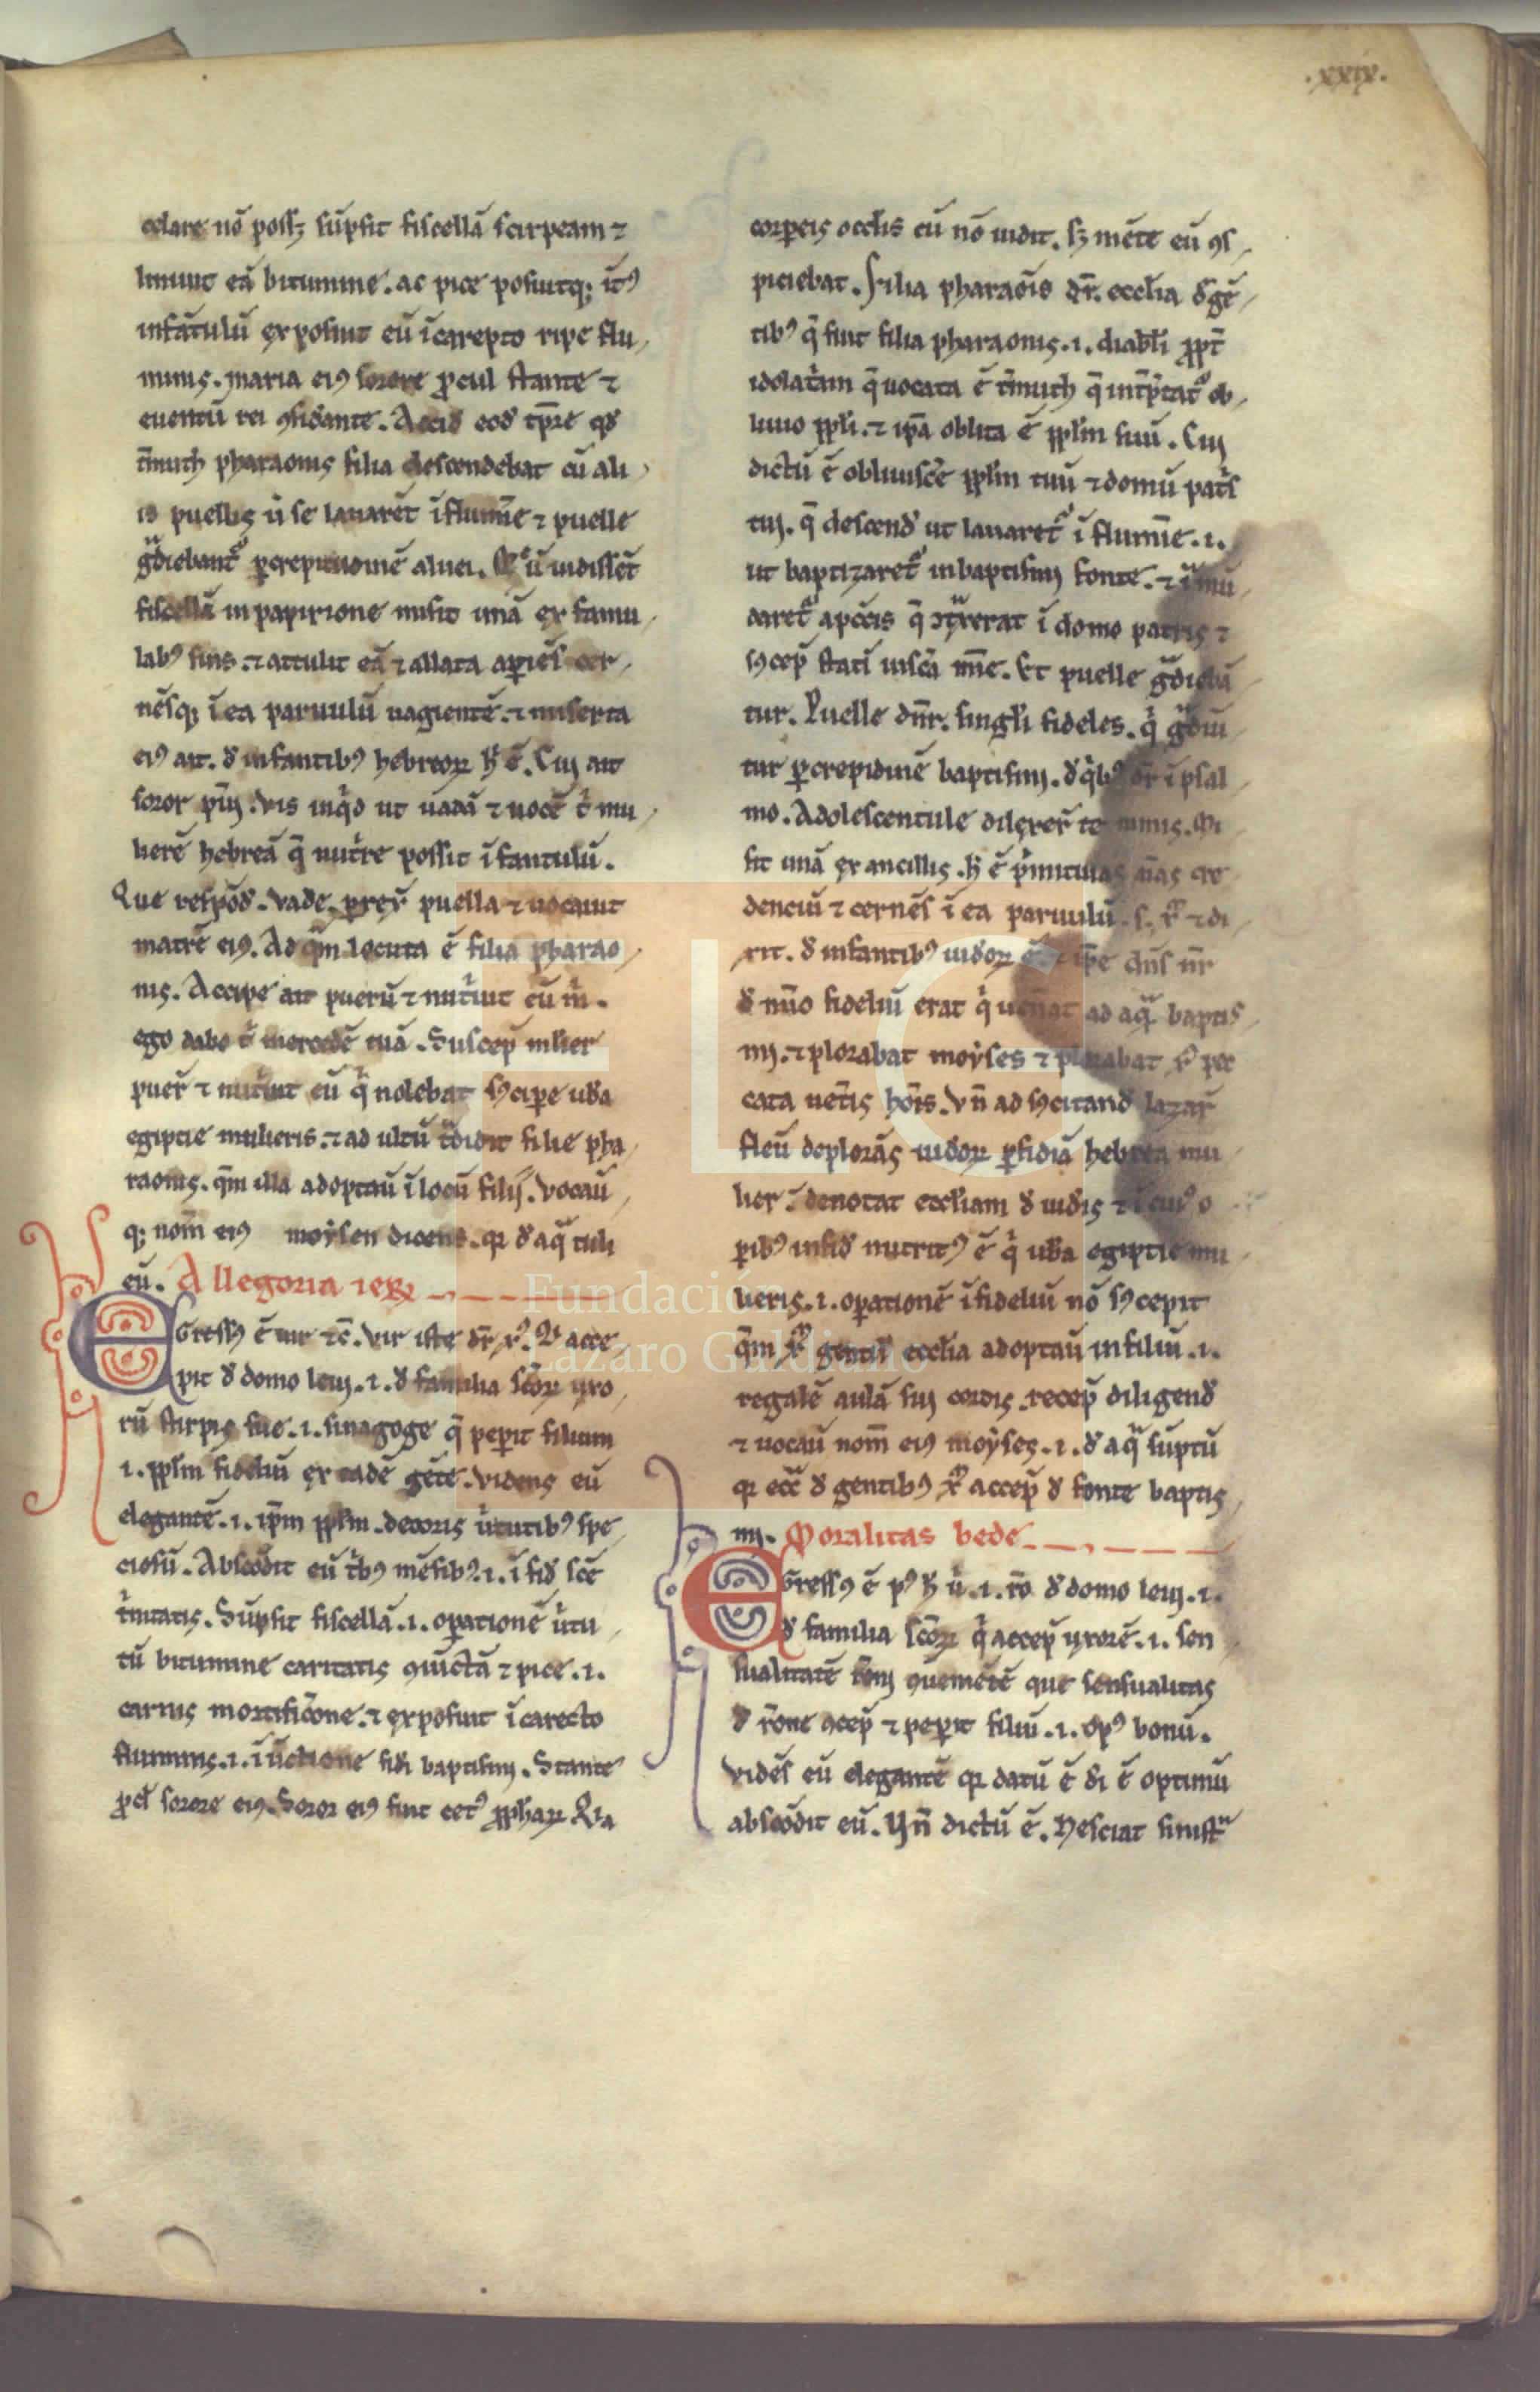 .xxix.
celare nō poss&, sūpsit fiscellā scirpeam ⁊
liniuit eā bitumine. ac pice posuitq; īt᷒
infātulū exposuit eū ī carepto ripe flu,
minis. maria ei᷒ sorore ꝓcul stante ⁊
euentū rei ꝯsid̄ante. Accid̄ eod̄ tp̄re qd̄
t̄muth pharaonis filia descendebat cū ali,
is puellis ut se lauaret ī flumīe ⁊ puelle
gͣdiebant᷑ ꝑ crepidinē aluei.
fiscellā in papirione misit unā ex famu,
lab᷒ suis. ⁊ attulit eā ⁊ allata aꝑiēs cer,
nēsq; ī ea paruulū uagientē. ⁊ miserta
ei᷒ ait. d̄ infantib᷒ hebreoꝝ h̄ ē. Cui ait
soror pūi. Vis inqͥd ut uadā ⁊ uocē tͥ mu,
lierē hebreā q̄ nutͥre possit īfantulū.
Que respōd̄. Vade. ꝑrex̄ puella ⁊ uocauit
matrē ei᷒. Ad qͣm locuta ē filia pharao,
nis. Accipe ait puerū ⁊ nutͥ eū m̄.
ego dabo tͥ mercedē tuā. Suscep̄ mlier
puer̄ ⁊ nutͥuit eū qͥ nolebat s᷒cipe ub̄a
egiptie mulieris. ⁊ ad ultū tͣdidit filie pha,
raonis. qͣm illa adoptau̅ ī locū filij. Vocau̅,
q; nom̄ ei᷒ moẏsen dicens. qꝛ d̄ aqͣ tuli
eū. Allegoria ieꝝ
Egress᷒ ē uir ⁊c̄. Vir iste dr̄ xp̄. acce,
pit d̄ domo leui. .i. d̄ familia scōꝝ uxo,
rū stirpis sue. .i. sinagoge q̄ peꝑit filium
.i. ppl̄m fideliū ex eadē gēte. Videns eū
elegantē. .i. ip̄m ppl̄m. decoris uͥtutib᷒ spe,
ciosū. Abscōdit eū tͥb᷒ mēsib᷒. .i. ī fid̄ scē
tͥnitatis. Sūpsit fiscellā. .i. oꝑationē uͥtu,
tū bitumine caritatis ꝯuīctā ⁊ pice. .i.
carnis mortificōne. ⁊ exposuit ī carecto
fluminis. .i. baptismi. Stante
ꝓcl̄ sorore ei᷒. Soror ei᷒ fuit cet᷒ ꝓphaꝝ Q̄ia
corꝑeis occlis eū nō uidit. s& mēte eū ꝯs,
piciebat. Filia pharaōis dr̄. eccl̄ia d̄ gē,
tib᷒ q̄ fuit filia pharaonis. .i. diabl̄i ꝓpt̄
idolatͥam q̄ uocata ē t̄muth q̄ int̄p̄tat᷑ ob,
liuio ppl̄i. ⁊ ip̄a oblita ē ppl̄m suū. Cui
dictū ē obliuisc̄e ppl̄m tuū ⁊ domū patͥs
tui. q̄ descend̄ ut lauaret᷑ ī flumīe. .i.
ut baptizaret᷑ in baptismi fonte. ⁊
daret᷑ a pccīs q̄ ꝯtͣxerat ī domo patris ⁊
s᷒cep̄ statī uiscā mīe. Et puelle gͣdiebā
tur. Puelle dn̄r. singl̄i fideles. qͥ gͣdiū
tur ꝑ crepidinē baptismi. d̄ qͥb᷒ dr̄ ī psal
mo. Adolescentule dilexer̄ te nimis. Mi
sit unā ex ancillis. h̄ ē pͥmitiuas aīas cre
denciū ⁊ cernēs ī ea paruulū. s. xp̄ ⁊ di
xit. d̄ infantib᷒ iud̄oꝝ ē. ip̄e dn̄s nr̄
d̄ nūo fideliū erat qͥ uen̄at ad aqͣ baptis,
mi. ⁊ plorabat moẏses ⁊ plorabat xp̄ pec
cata uet̄is hoīs. Vn̄ ad s᷒citand̄ lazar̄
fleū deplorās iud̄oꝝ ꝑfidiā hebrea mu
lier denotat eccl̄iam d̄ iud̄is ⁊ ī cui᷒ o
ꝑib᷒ in fid̄ nutrit᷒ ē qͥ ub̄a egiptie mu
lieris. .i. oꝑationē īfideliū nō s᷒cepit
qͣm xp̄ gentiū eccl̄ia adoptau̅ in filiū. .i.
regalē aulā sui cordis. recep̄ diligend̄
⁊ uocau̅ nom̄ ei᷒ moẏses. .i. d̄ aqͣ sūptū
qꝛ ecc̄ d̄ gentib᷒ xp̄ accep̄ d̄ fonte baptis,
mi. Moralitas bede
Egress᷒ ē p᷒ h̄ uͥ. .i. rō d̄ domo leui. .i.
d̄ familia scōꝝ qͥ accep̄ uxorē. .i. sen
sualitatē que sensualitas
d̄ rōne ꝯcep̄ ⁊ peꝑit filiū. .i. op᷒ bonū.
Vidēs eū elegantē qꝛ datū ē di ē optimū
abscōdit eū. Vn̄ dictū ē. Nesciat sinistͣ
Fundación
Lázaro Galdiano